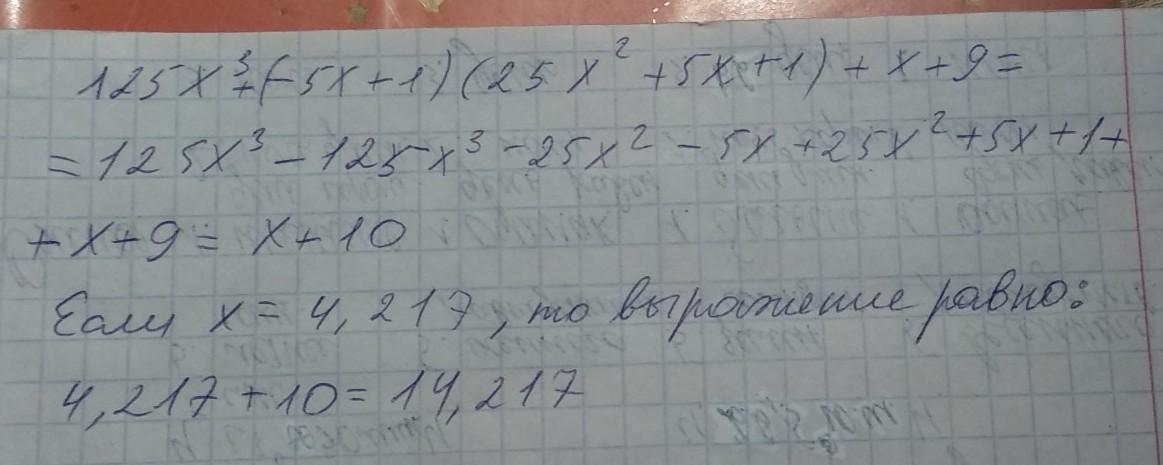 125x³+(-5x+1)(25x²+5x+1)+x+9=
=125x³-125x³-25x²-5x+25x²+5x+1+
+x+9=x+10
Если x=4,217, то выражение равно:
4,217+10=14,217